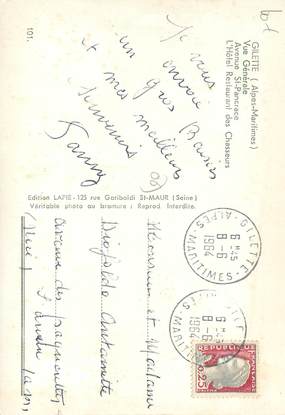 101.
GILETTE (Alpes-Maritimes)
Vue Générale
Avenue St-Pancrace
L'Hôtel Restaurant des Chasseurs
Je vous
envoie
un gros Baiser
et mes meilleurs
souvenirs
Fanny
Edition LAPIE - 125 rue Garibaldi St-MAUR (Seine)
Véritable photo au bromure : Reprod. Interdite.
Monsieur et Madame
Antoinette
Avenue des paquerettes
(Nice)
(A.M)
GILETTE
6H45
8-6
1964
ALPES-MARITIMES
GILETTE
6H45
8-6
1964
ALPES-MARITIMES
REPUBLIQUE FRANÇAISE
0,25